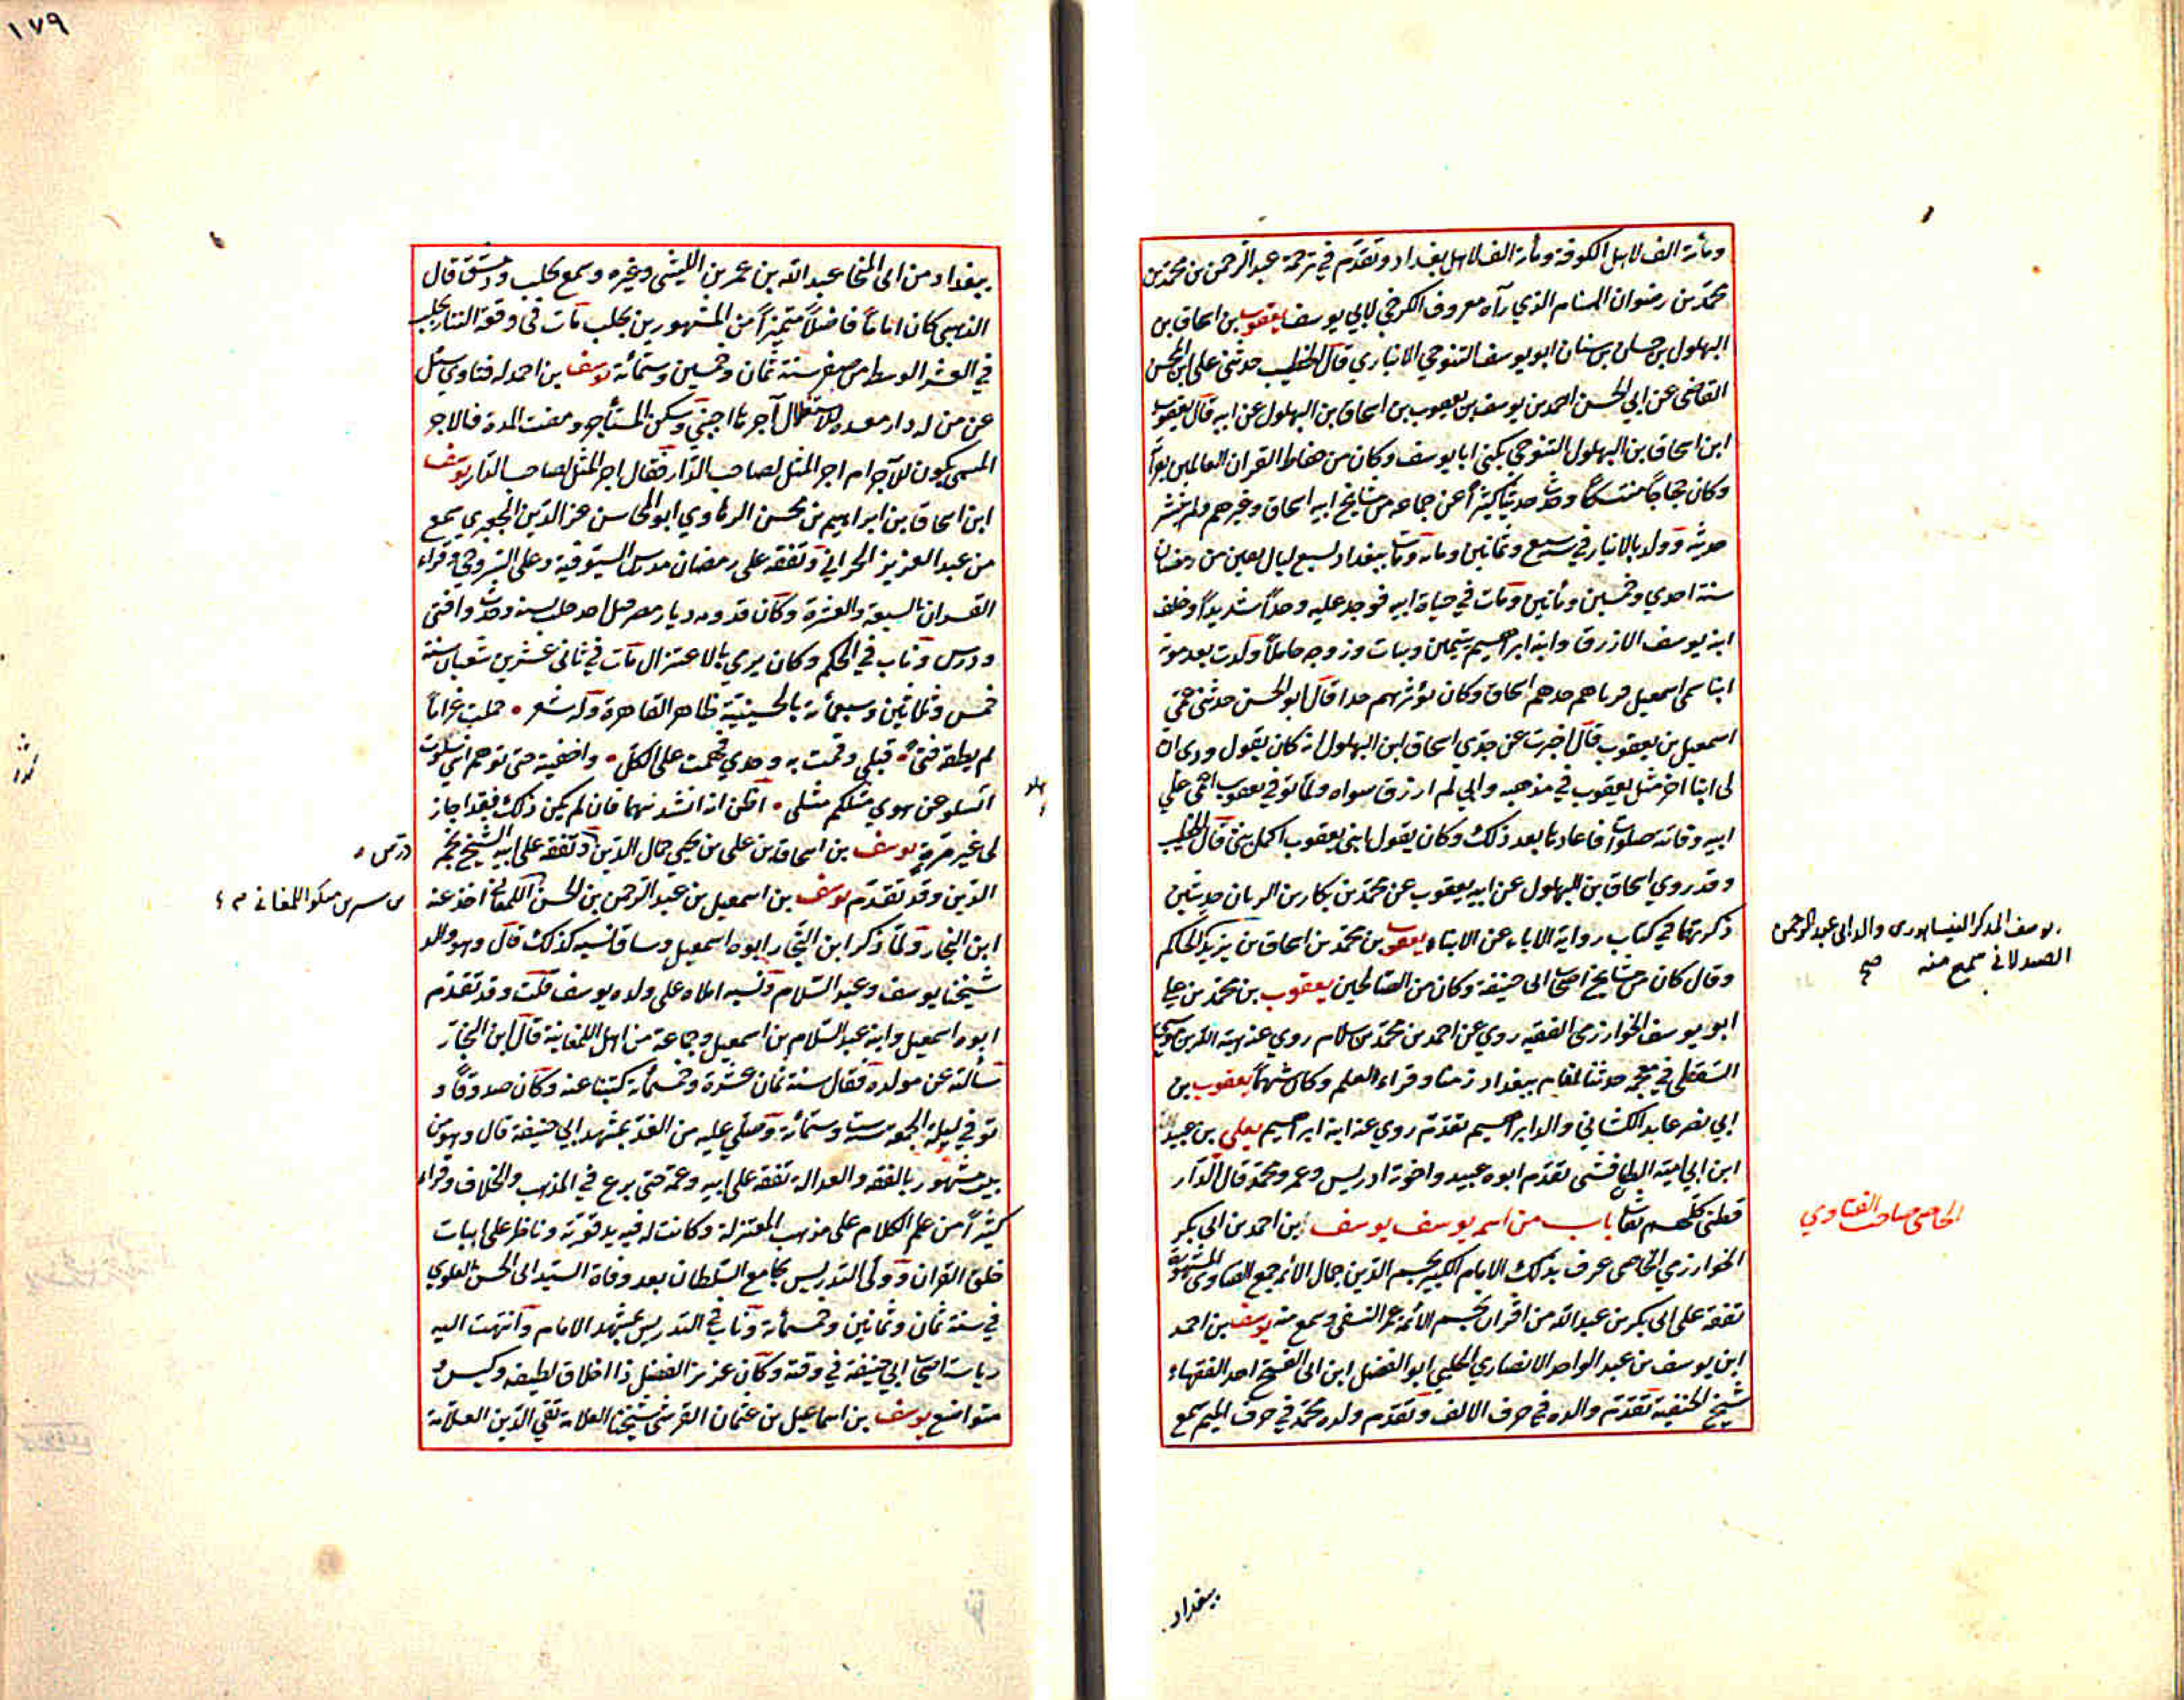 ومأتة الف لاهل الكوفة ومأتة الف لاهل بغداد وتقدم في ترجمة عبد الرحمن بن محمد بن
محمد بن رضوان المنام الذي رآه معروف الكرخي لابي يوسف يعقوب بن اسحاق بن
البهلول بن حسان بن سنان ابو يوسف التنوخي الانباري قال الخطيب حدثني علي ابن المحسن
القاضي عن ابي الحسن احمد بن يوسف بن يعقوب بن اسحاق بن البهلول عن ابيه قال يعقوب
ابن اسحاق بن البهلول التنوخي يكنى ابا يوسف وكان من حفاظ القران العالمين
وكان حجاجا متنسكا وحدث حديثا كثيرا عن جماعة من مشايخ ابيه اسحاق وغيرهم ولم ينتشر
حديثه وولد بالانبار في سنة سبع وثمانين ومأة ومات ببغداد لسبع ليال بقين من رمضان
سنة احدي وخمسين ومأتين ومات في حياة ابيه فوجد عليه وجدا شديدا وخلف
ابنه يوسف الازرق وابنه ابراهيم يتيمين وبنات وزوجه حاملا ولدت بعد موته
ابنا سمي اسمعيل فرباهم جدهم اسحاق وكان يؤثرهم جدا قال ابو الحسن حدثني عمي
اسمعيل بن يعقوب قال اخبرت عن جدي اسحاق ابن البهلول انه كان يقول ودي ان
لي ابنا اخر مثل يعقوب في مذهبه واني لم ارزق سواه ولما توفي يعقوب اغمي علي
ابيه وفاتته صلوات فاعادها بعد ذلك وكان يقول ابني يعقوب اكمل مني قال الخطيب
وقد روي اسحاق بن البهلول عن ابيه يعقوب عن محمد بن بكار بن الريان حديثين
ذكرتهما في كتاب رواية الاباء عن الابناء يعقوب بن محمد بن اسحاق بن يزيد الحاكم
وقال كان من مشايخ اصحاب ابي حنيفة وكان من الصالحين يعقوب بن محمد بن علي
ابو يوسف الخوارزمي الفقيه روي عن احمد بن محمد بن سلام روي عنه هبة الله بن موسي
السقطي في معجمه حدثنا لمقام ببغداد زمنا وقراء العلم وكان شهما يعقوب بن
ابي نصر عابد الكشاني والد ابراهيم تقدم روي عنه ابنه ابراهيم يعلى بن عبيد
ابن ابي امية الطنافسي تقدم ابوه عبيد واخوته ادريس وعمر ومحمد قال الدار
قطني كلهم ثقات باب من اسمه يوسف يوسف ابن احمد بن ابي بكر
الخوارزمي الخاصي عرف بذلك الامام الكبير نجم الدين جمال الائمة جمع الفتاوي المشهورة
تفقه علي ابي بكر بن عبد الله من اقران نجم الائمة عمر النسفي وسمع منه يوسف بن احمد
ابن يوسف بن عبد الواحد الانصاري الحلبي ابو الفضل ابن ابي الفتح احد الفقهاء
شيخ الحنفية تقدم والده في حرف الالف وتقدم ولده محمد في حرف الميم سمع
يوسف المذكر النيسابوري والد ابي عبد الرحمن
الصيدلاني سمع منه صح
الخاصي صاحب الفتاوي
ببغداد
١٧٩
ببغداد من ابي المنجا عبد الله بن عمر بن الليثي وغيره وسمع بحلب ودمشق قال
الذهبي كان اماما فاضلا متميزا من المشهورين بحلب مات في وقعة التتار بحلب
في العشر الوسط من صفر سنة ثمان وخمسين وستمأئة يوسف بن احمد له فتاوي سئل
عن من له دار معده للاستغلال آجرها اجنبي وسكن المستأجر ومضت المدة فالاجر
المسمى يكون للآجر ام اجر المثل لصاحب الدار فقال اجر المثل لصاحب الدار يوسف
ابن اسحاق بن ابراهيم بن محسن الرهاوي ابو المحاسن عز الدين الجعبري سمع
من عبد العزيز الحراني وتفقه على رمضان مدرس السيوفية وعلى السروجي وقراء
القران بالسبعة والعشرة وكان قدومه ديار مصر وحدث وافتى
ودرس وناب في الحكم وكان يري بالاعتزال مات في ثاني عشرين شعبان سنة
خمس وثلاثين وسبعمأئة بالحسينية ظاهر القاهرة وله شعر • حملت غراما
لم يطقه فتى • قبلي وقمت به وحدي فهمت على الكل • واخفيته حتى توهم اني سلوت
اتسلو عن هوي مثلكم مثلي • اظن انه انشدنيهما فان لم يكن ذلك فقد اجاز
لي غير مرة يوسف بن اسحاق بن على بن يحيى جمال الدين تفقه على ابيه الشيخ نجم
الدين وقد تقدم يوسف بن اسمعيل بن عبد الرحمن بن الحسن اللمغاني اخذ عنه
ابن النجار ولما ذكر ابن النجار ابوه اسمعيل وساق نسبه كذلك قال وهو والد
شيخنا يوسف وعبد السلام ونسبه املاه على ولده يوسف قلت وقد تقدم
ابوه اسمعيل وابنه عبد السلام بن اسمعيل وجماعة من اهل اللمغانية قال ابن النجار
سألته عن مولده فقال سنة ثمان عشرة وخمسمأئة كتبنا عنه وكان صدوقا و
توفي ليلة الجمعة سنة ست وستمأئة وصلي عليه من الغد بمشهد ابي حنيفة قال وهو من
بيت مشهور بالفقه والعدالة تفقه على ابيه وعمه حتى برع في المذهب والخلاف وقراء
كثيرا من علم الكلام على مذهب المعتزلة وكانت له فيه يد قوية وناظر على اثبات
خلق القران وولى التدريس بجامع السلطان بعد وفاة السيد ابي الحسن العلوي
في سنة ثمان وثمانين وخمسمأئة وناب في التدريس بمشهد الامام وانتهت اليه
رياسة اصحاب ابي حنيفة في وقته وكان عزيز الفضل ذا اخلاق لطيفة وكيس و
متواضع يوسف بن اسماعيل بن عثمان القرشي شيخنا العلامة تقي الدين العلامة
درس